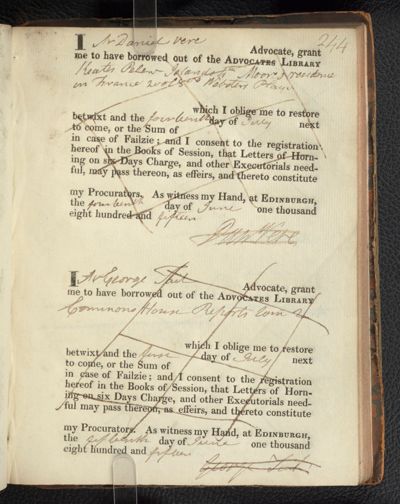 244
I Mr Daniel Vere Advocate, grant
me to have borrowed out of the ADVOCATES LIBRARY
Keates Pelew Islands Moore residence
in France 2 vols Websters Plays
which I oblige me to restore
betwixt and the fourteenth day of July next
to come, or the Sum of
in case of Failzie; and I consent to the registration
hereof in the Books of Session, that Letters of Horn-
ing on six Days Charge, and other Executorials need-
ful, may pass thereon, as effeirs, and thereto constitute
my Procurators. As witness my Hand, at EDINBURGH,
the fourteenth day of June one thousand
eight hundred and fifteen
Dan Vere
I Mr George Tait Advocate, grant
me to have borrowed out of the ADVOCATES LIBRARY
Commons House Reports
which I oblige me to restore
betwixt and the first day of July next
to come, or the Sum of
in case of Failzie; and I consent to the registration
hereof in the Books of Session, that Letters of Horn-
ing on six Days Charge, and other Executorials need-
ful may pass thereon, as effeirs, and thereto constitute
my Procurators. As witness my Hand, at EDINBURGH,
the fifteenth day of June one thousand
eight hundred and fifteen
George Tait